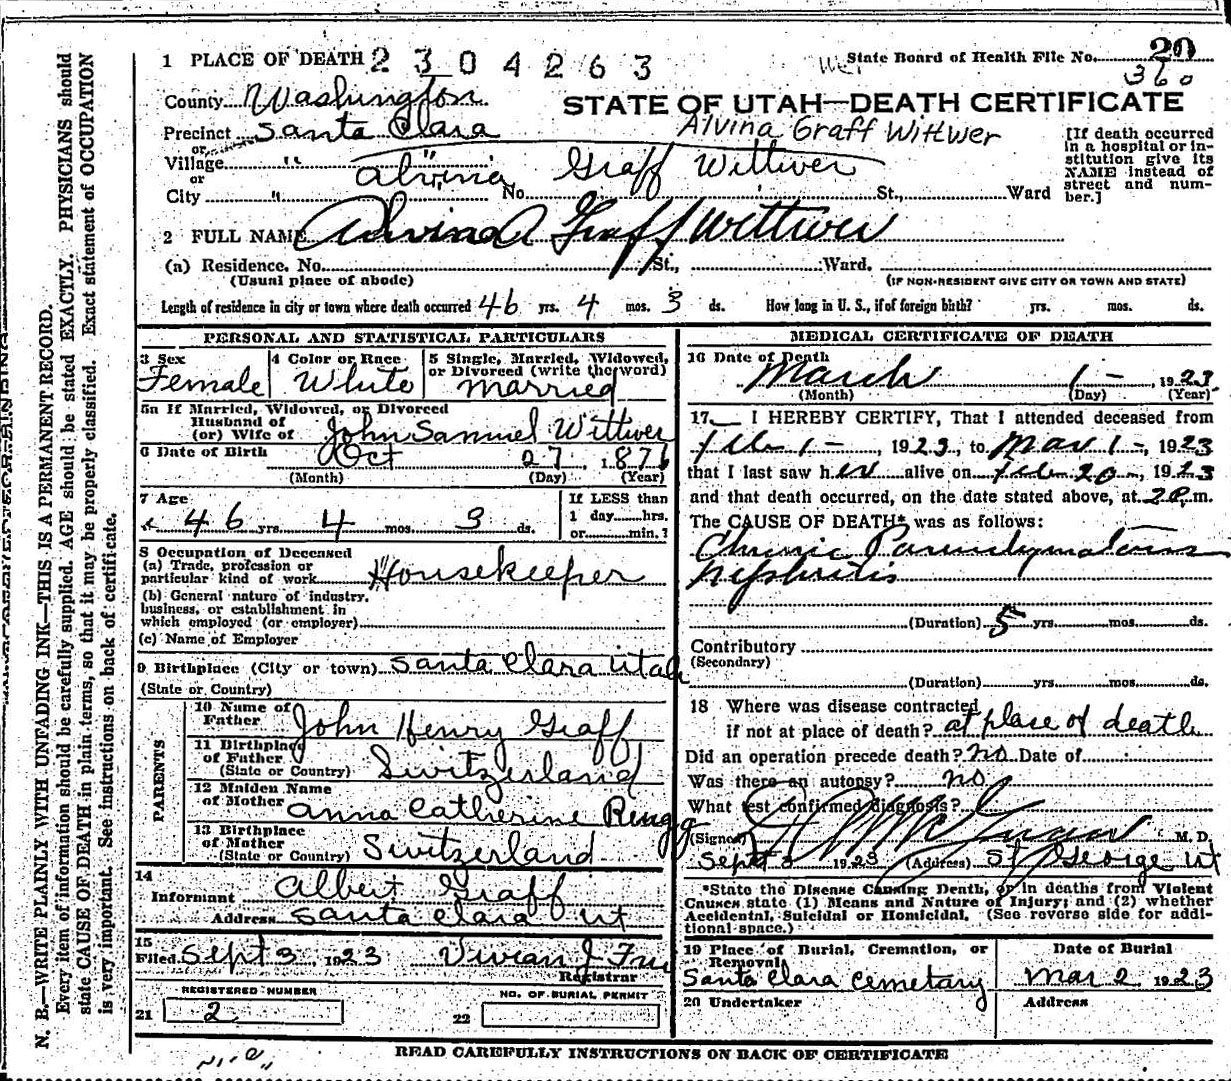 1 PLACE OF DEATH 2304263
State Board of Health File No. 20
360
County Washington
STATE OF UTAH—DEATH CERTIFICATE
Precinct Santa Clara
Alvina Graff Wittwer
or
Village " "
or
City "
Alvina Graff Wittwer
No. St., Ward
[If death occurred
in a hospital or in-
stitution give its
NAME instead of
street and num-
ber.]
2 FULL NAME Alvina Graff Wittwer
(a) Residence. No. St., Ward.
(Usual place of abode) (IF NON-RESIDENT GIVE CITY OR TOWN AND STATE)
Length of residence in city or town where death occurred 46 yrs. 4 mos. 3 ds. How long in U. S., if of foreign birth? yrs. mos. ds.
PERSONAL AND STATISTICAL PARTICULARS
3 Sex 4 Color or Race 5 Single, Married, Widowed,
or Divorced (write the word)
Female White married
5a If Married, Widowed, or Divorced
Husband of
(or) Wife of John Samuel Wittwer
6 Date of Birth Oct 27, 1876
(Month) (Day) (Year)
7 Age
46 yrs. 4 mos. 3 ds.
If LESS than
1 day hrs.
or min.?
8 Occupation of Deceased
(a) Trade, profession or
particular kind of work Housekeeper
(b) General nature of industry,
business, or establishment in
which employed (or employer)
(c) Name of Employer
9 Birthplace (City or town) Santa Clara Utah
(State or Country)
PARENTS
10 Name of
Father John Henry Graff
11 Birthplace
of Father
(State or Country) Switzerland
12 Maiden Name
of Mother Anna Catherine Rengg
13 Birthplace
of Mother
(State or Country) Switzerland
14
Informant Albert Graff
Address Santa Clara Ut
15
Filed Sept 3 1923 Vivian J
Registrar
REGISTERED NUMBER NO. OF BURIAL PERMIT
21 2 22
MEDICAL CERTIFICATE OF DEATH
16 Date of Death
March 1 - 1923
(Month) (Day) (Year)
17 I HEREBY CERTIFY, That I attended deceased from
Feb 1 -, 1923, to Mar 1 -, 1923
that I last saw her alive on Feb 20 -, 1923
and that death occurred, on the date stated above, at 2 P. m.
The CAUSE OF DEATH* was as follows:
Chronic Parenchymatous
Nephritis
(Duration) 5 yrs. mos. ds.
Contributory
(Secondary)
(Duration) yrs. mos. ds.
18 Where was disease contracted
if not at place of death? at place of death
Did an operation precede death? no Date of
Was there an autopsy? no
What test confirmed diagnosis?
(Signed) M. D.
Sept 3 1923 (Address) St George Ut
*State the Disease Causing Death, or in deaths from Violent
Causes state (1) Means and Nature of Injury; and (2) whether
Accidental, Suicidal or Homicidal. (See reverse side for addi-
tional space.)
19 Place of Burial, Cremation, or
Removal
Date of Burial
Santa Clara Cemetary Mar 2 1923
20 Undertaker Address
READ CAREFULLY INSTRUCTIONS ON BACK OF CERTIFICATE
N. B.—WRITE PLAINLY WITH UNFADING INK—THIS IS A PERMANENT RECORD.
Every item of information should be carefully supplied. AGE should be stated EXACTLY. PHYSICIANS should
state CAUSE OF DEATH in plain terms, so that it may be properly classified. Exact statement of OCCUPATION
is very important. See instructions on back of certificate.